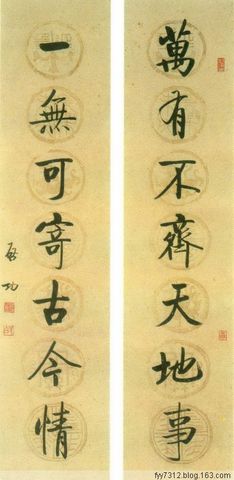 萬有不齊天地事
一無可寄古今情
啟功
fyy7312.blog.163.com